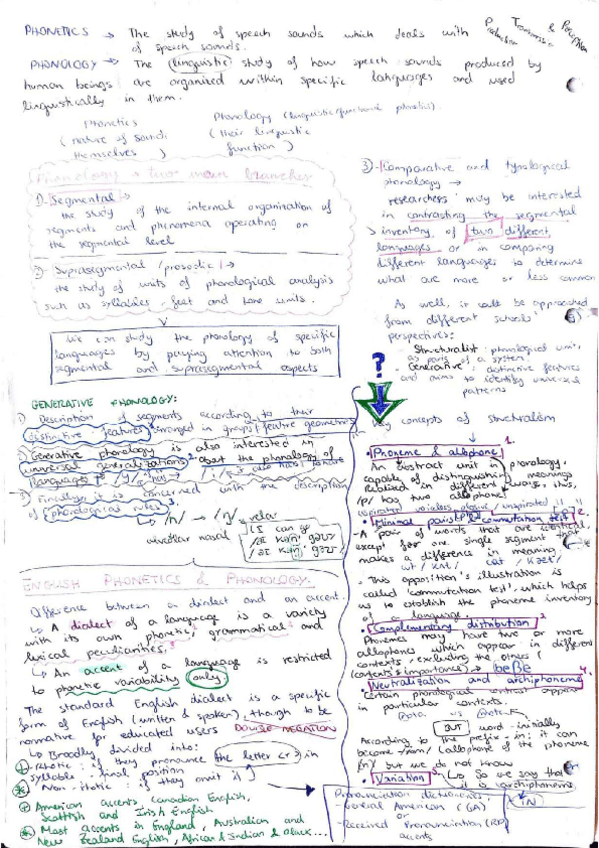 PHONETICS → The study of speech sounds which deals with Production Transmission & Perception
of speech sounds.
PHONOLOGY → The (linguistic) study of how speech sounds produced by
human beings are organised within specific languages and used
linguistically in them.
Phonetics
(nature of sounds
themselves)
Phonology (linguistic/functional phonetics)
(their linguistic
function)
Phonology → two main branches
1) Segmental →
the study of the internal organization of
segments and phenomena operating on
the segmental level
2) Suprasegmental / prosodic →
the study of units of phonological analysis
such as syllables - feet and tone units.
We can study the phonology of specific
languages by paying attention to both
segmental and suprasegmental aspects
3) Comparative and typological
phonology →
researchers may be interested
in contrasting the segmental
inventory of two different
languages or in comparing
different languages to determine
what are more or less common
As well, it could be approached
from different schools'
perspectives:
- Structuralist: phonological units
as parts of a system.
- Generative: distinctive features
and aims to identify universal
patterns
GENERATIVE PHONOLOGY:
1) Description of segments according to their
distinctive features arranged in groups (feature geometry)
2) Generative phonology is also interested in
universal generalizations about the phonology of
languages
3) Finally, it is concerned with the description
of phonological rules
/n/ → /ŋ/ velar
alveolar nasal
I can go
ENGLISH PHONETICS & PHONOLOGY.
Difference between a dialect and an accent.
↳ A dialect of a language is a variety
with its own phonetic, grammatical and
lexical peculiarities.
↳ An accent of a language is restricted
to phonetic variability only
The standard English dialect is a specific
form of English (written & spoken), though to be
normative for educated users DOUBLE NEGATION
↳ Broadly divided into:
Rhotic: if they pronounce the letter (r) in
syllable-final position
Non-rhotic: if they omit it
American accents, Canadian English,
Scottish and Irish English
Most accents in England, Australian and
New Zealand English, African & Indian & Black...
?
Key concepts of structuralism
1.
• Phoneme & allophone
An abstract unit in phonology,
capable of distinguishing meanings
realised in different ways, thus,
/p/ has two allophones
aspirated voiceless plosive / unaspirated
• Minimal pairs & commutation test 2.
- A pair of words that are identical
except for one single segment that
makes a difference in meaning.
cat /kæt/
- This opposition's illustration is
called 'commutation test', which helps
us to establish the phoneme inventory
of a language.
• Complementary distribution 3
Phonemes may have two or more
allophones which appear in different
contexts, excluding the others
(contexts importance) → beβe
• Neutralization and archiphoneme 4.
Certain phonological contrast appear
in particular contexts.
BUT word-initially
According to the prefix -in: it can
become /m/ (allophone of the phoneme
/n/ but we do not know
↳ So we say that
it is archiphoneme
IN
• Variation
Pronunciation dictionaries
- General American (GA)
or
- Received Pronunciation (RP)
accents